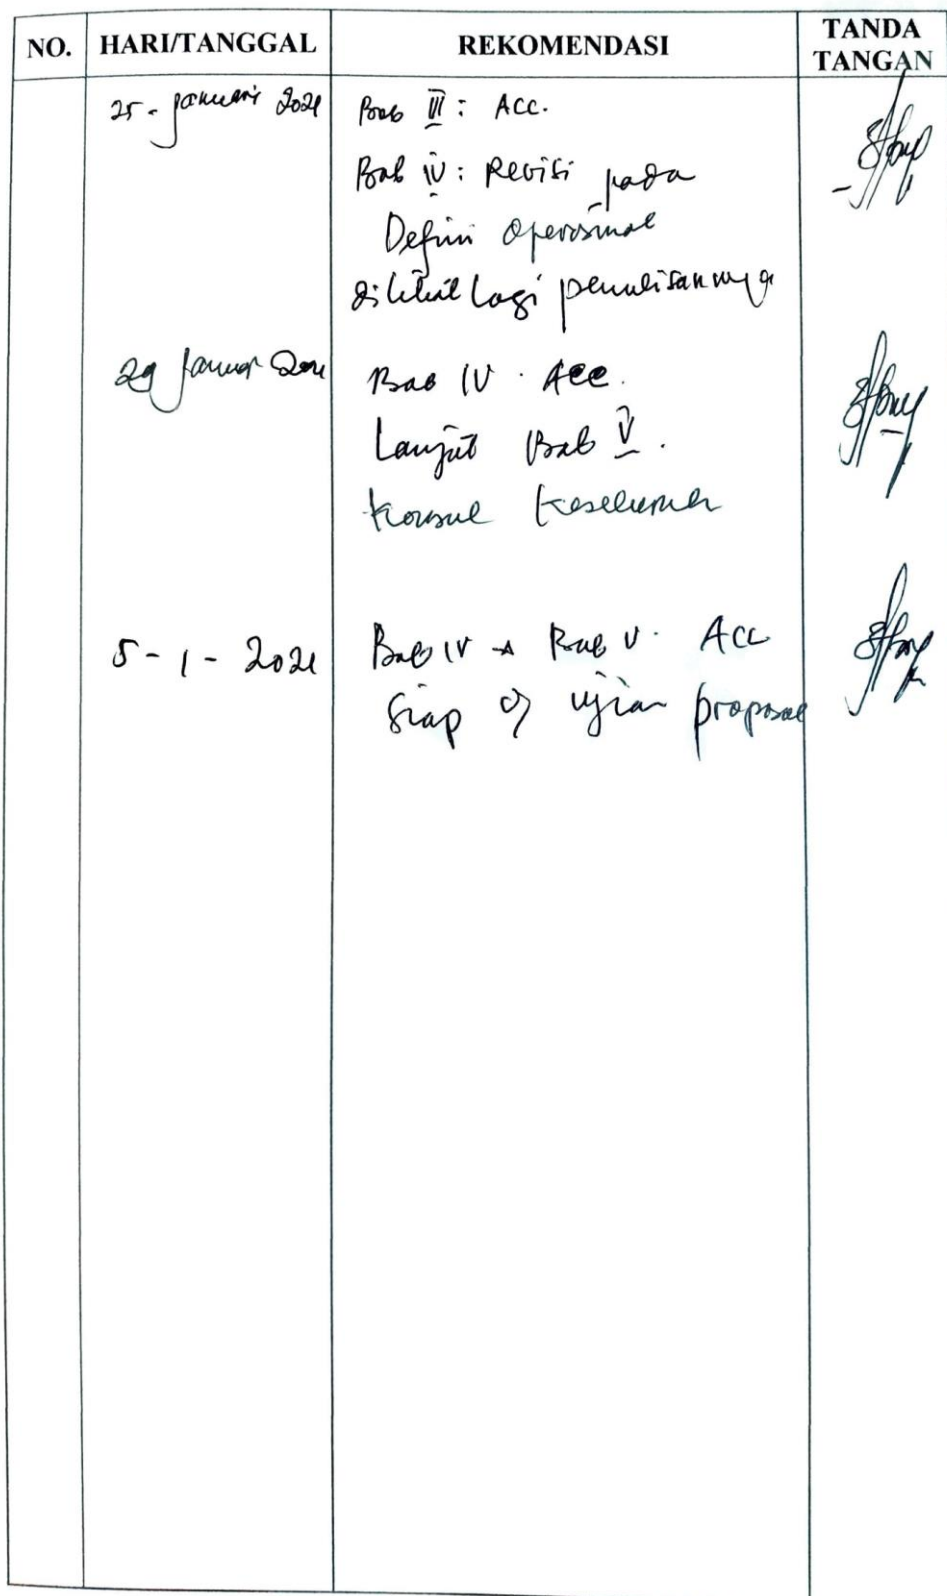 NO. HARI/TANGGAL REKOMENDASI TANDA TANGAN
25 - Januari 2021 Bab III : ACC.
Bab IV : Revisi pada
Defini operasional
dilihat lagi penulisannya
29 Januar 2021 Bab IV . Acc.
Lanjut Bab V.
Konsul Keseluruhan
5 - 1 - 2021 Bab IV Bab V. ACC
Siap ujian proposal